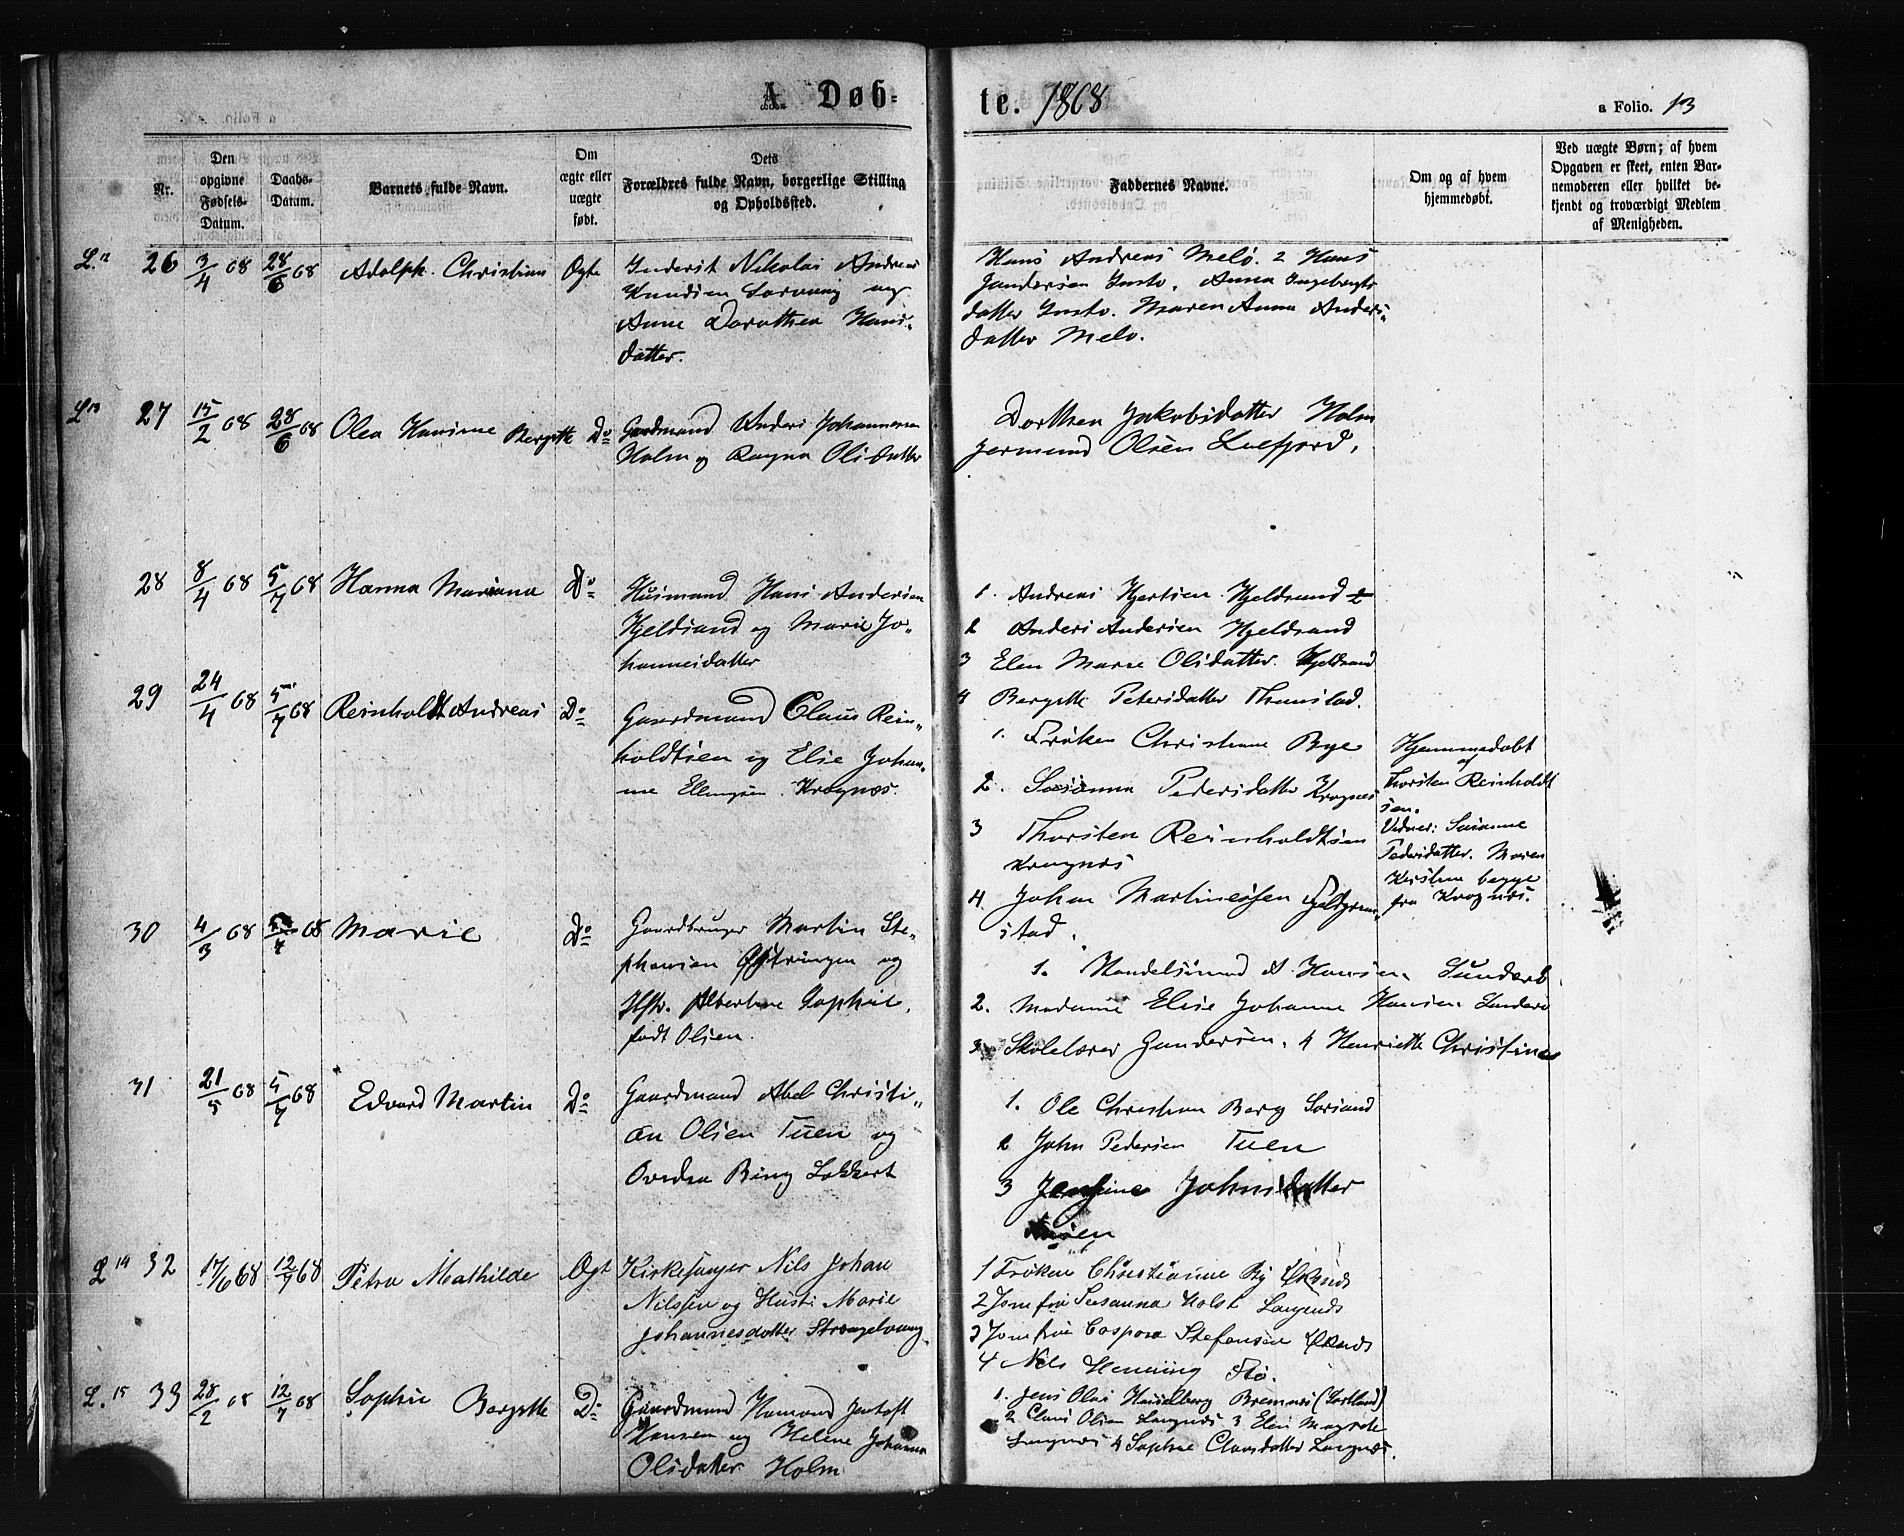 A. Døb=
te. 1868
a Folio. 13
Nr.
Den opgivne Fødsels-Datum.
Daabs-Datum.
Barnets fulde Navn.
Om ægte eller uægte født.
Dets Forældres fulde Navn, borgerlige Stilling og Opholdssted.
Faddernes Navne.
Om og af hvem hjemmedøbt.
Ved uægte Børn; af hvem Opgaven er skeet, enten Barnemoderen eller hvilket bekjendt og troværdigt Medlem af Menigheden.
L. 12 26 3/4 68 28/6 68 Adolph Christian Ægte
Inderst Nikolai Andreas
Knudsen og
Anne Dorothea Hans-
datter.
Hans Andreas Melø. 2 Hans
Anna Ingebrigts
datter Maren Anna Anders-
datter Melø.
L 13 27 15/2 68 28/6 68 Olea Hansine Bergitte Do
Gaardmand Anders Johannesen
Holm og Ragna Olsdatter
Dorthea Jakobsdatter Holm
Jermund Olsen
28 8/4 68 5/7 68 Hanna Mariana Do
Husmand Hans Andersen
Hjeldsand og Marie Jo-
hannesdatter
1. Andreas Hjeldsand
2 Anders Andersen Hjeldsand
3 Elen Marie Olsdatter Hjeldsand
4 Bergitte Petersdatter
29 24/4 68 5/7 68 Reinholdt Andreas Do
Gaardmand Claus Rein-
holdtsen og Elise Johan-
ne Ellingsen Kragnæs
1. Frøken Christiane Bye
2. Susanna Pedersdatter Kragnes
3 Thorsten Reinholdtsen
Kragnes
4. Johan Martinessen
stad.
Hjemmedøbt
af
Thorsten Reinholdt
sen.
Vidner: Susanne
Pedersdatter. Maren
Kirstine begge
fra Kragnæs.
30 4/3 68 5/7 68 Marie Do
Gaardbruger Martin Ste-
phansen og
Hstr. Albertine Sophie,
født Olsen.
1. Handelsmand A Hansen
2. Madame Elise Johanne Hansen
3 Skolelærer Gundersen. 4 Henriette Christine
31 21/5 68 5/7 68 Edvard Martin Do
Gaardmand Abel Christi-
an Olsen Tuen og
Ovedia Bing Lokkert
1. Ole Christian Berg
2 John Pedersen Tuen
3 Johnsdatter
L 14 32 17/6 68 12/7 68 Petra Mathilde Ægt
Kirkesanger Nils Johan
Nilssen og Hustr Marie
Johannesdatter Strengelvaag
1 Frøken Christianne By
2 Jomfru Susanna Holst Langnes
3 Jomfru Caspara Stefansen
4 Nils Henning Stø.
L. 15 33 28/2 68 12/7 68 Sophie Bergitte Do
Gaardmand Hemond Jentoft
Hansen og Helene Johanna
Olsdatter Holm
1. Jens Olai Hesselberg Bremnes (Sortland)
2 Claus Olsen Langnes 3 Elen Magrete
Langnes 4 Sophie Clausdatter Langnes.